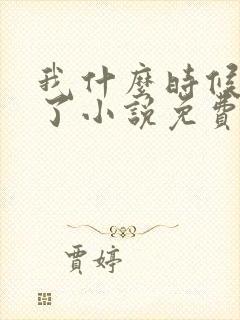 我什麼時候
了小說免費
賈婷